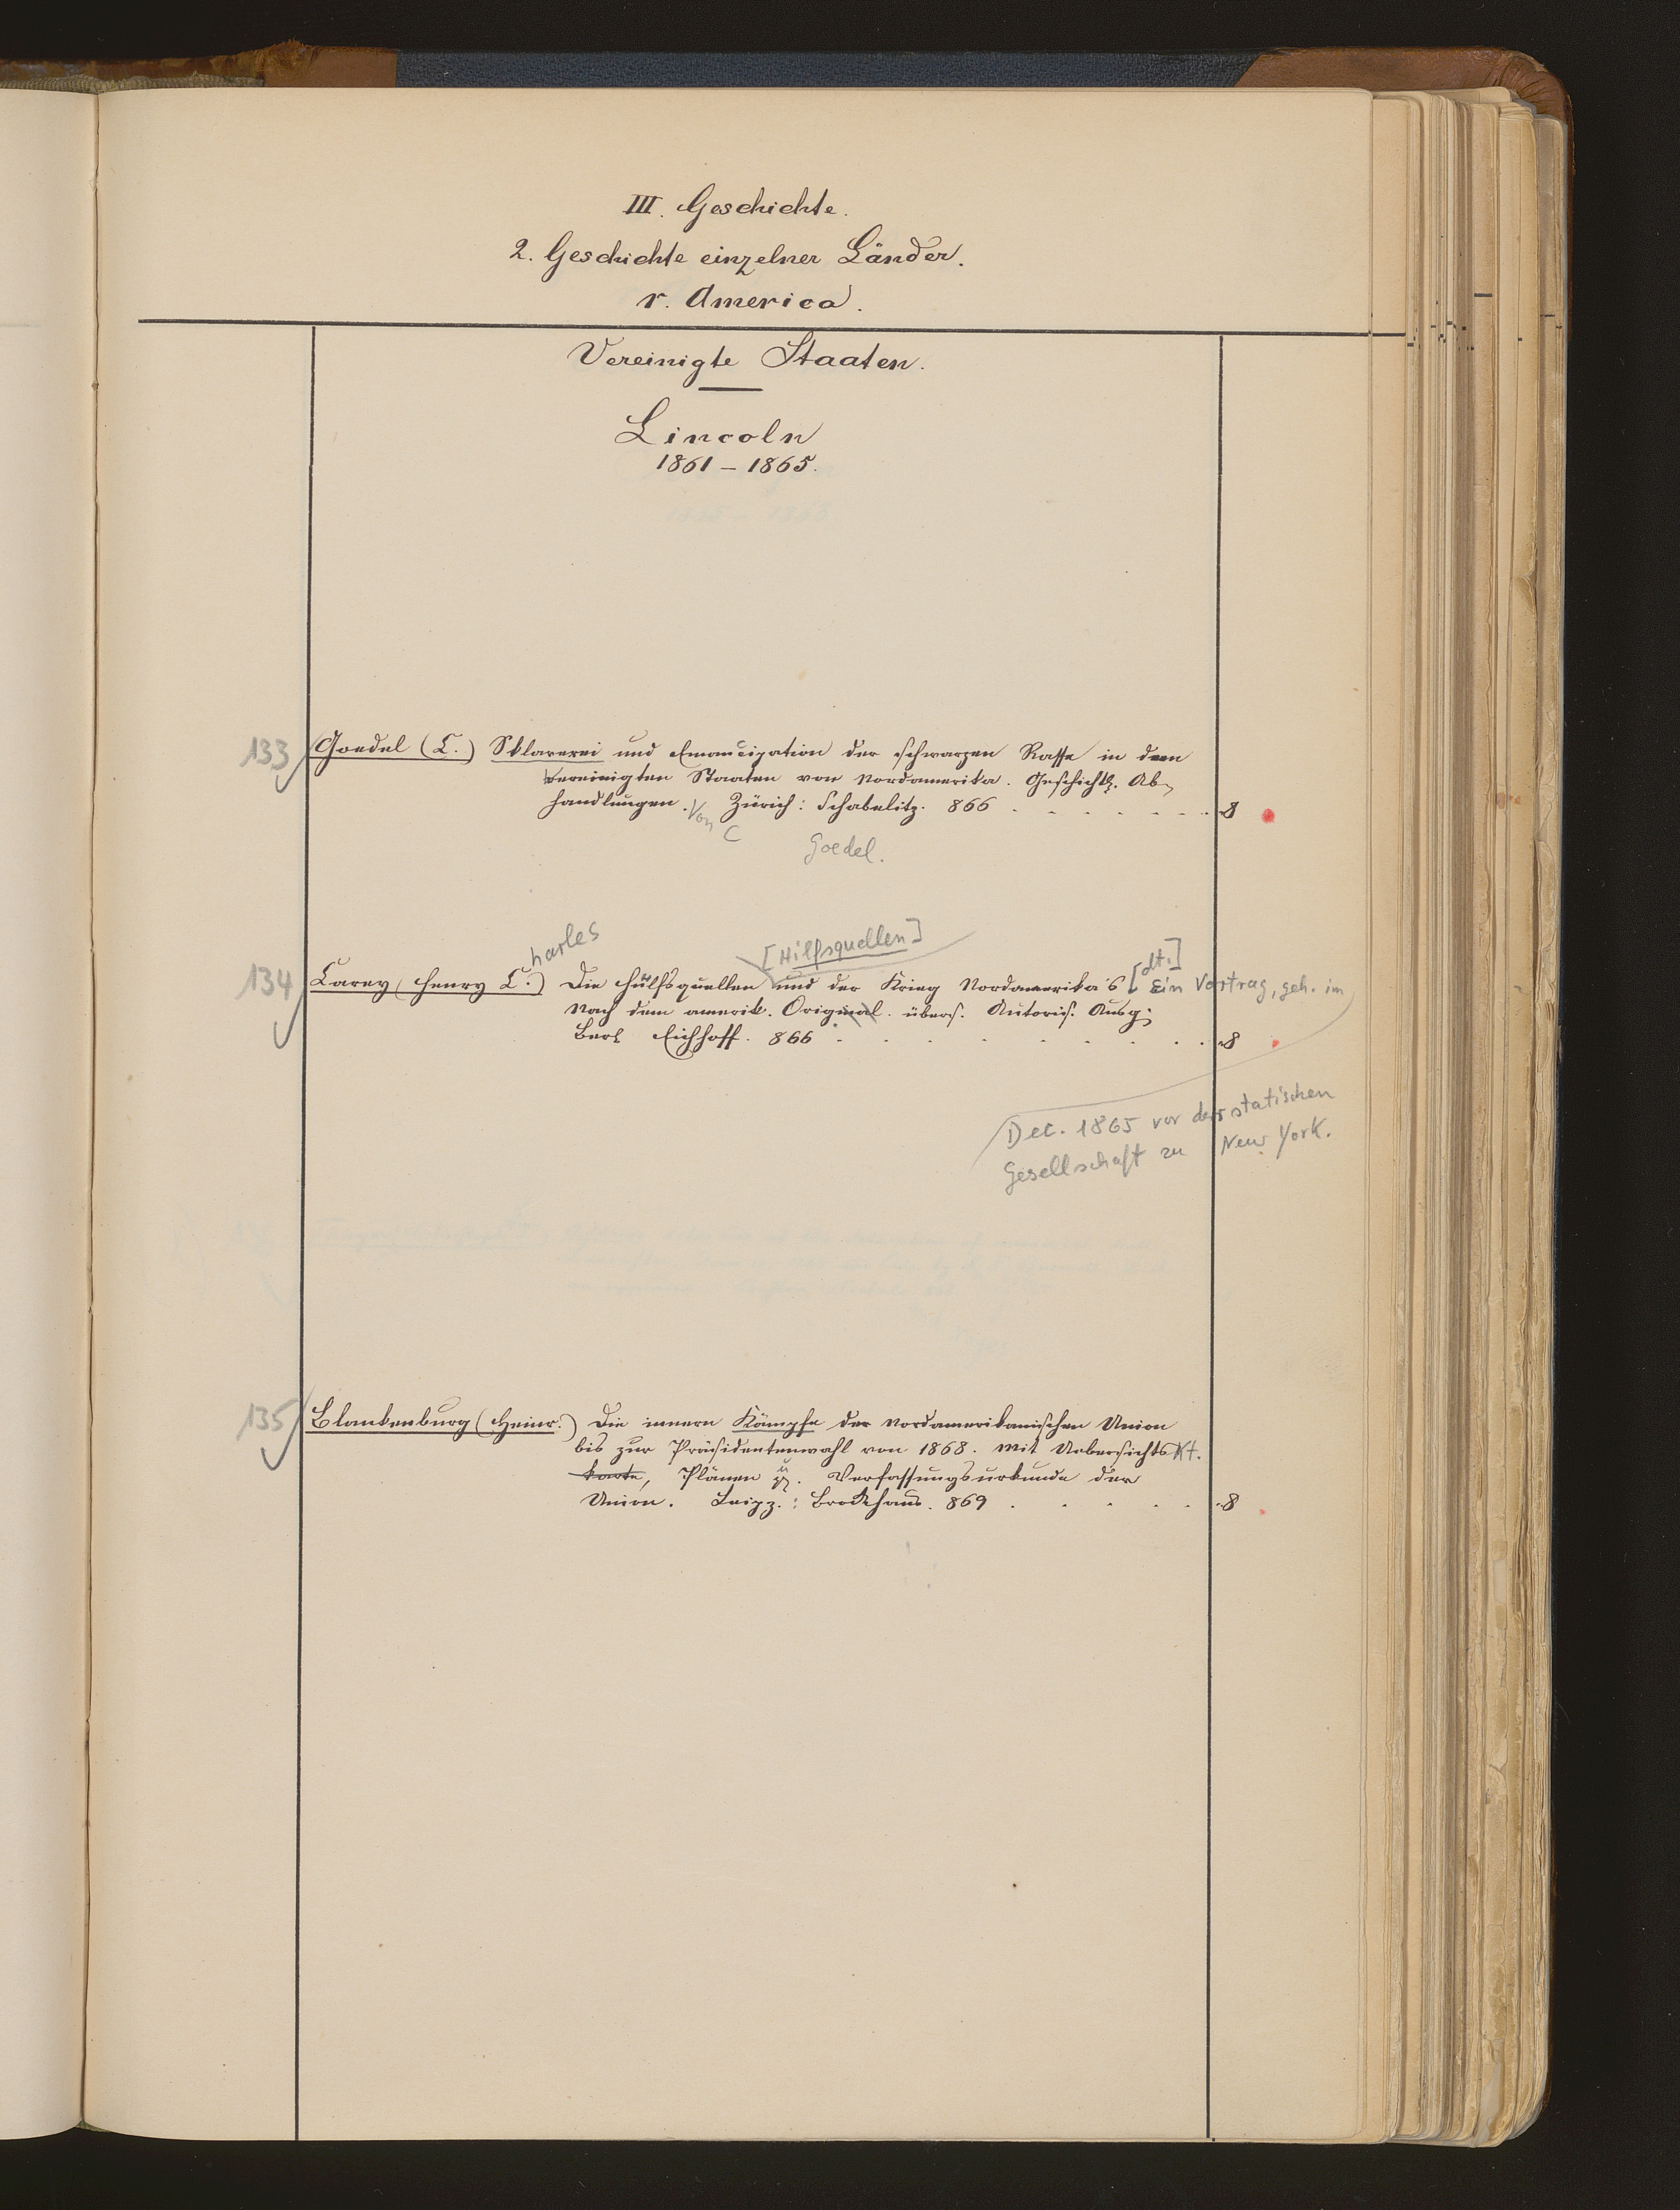 III. Geschichte.
2. Geschichte einzelner Länder.
r. America.
Vereinigte Staaten.
Lincoln
1861 – 1865.
133 Goedel (C.) Sklaverei und Emancipation der schwarzen Rasse in den
Vereinigten Staaten von Nordamerika. Geschichtl. Ab-
handlungen. Zürich: Schabelitz. 866 . . . . . . . 8
Von C Goedel.
harles [Hilfsquellen] [dt.]
134 Carey (Henry C.) Die Hülfsquellen und der Krieg Nordamerika's. Ein Vortrag, geh. im
Nach dem amerik. Original. übers. Autoris. Ausg.
Berl Eichhoff. 866 . . . . . . . . 8
Dec. 1865 vor der statischen
Gesellschaft zu New York.
135 Blankenburg (Heinr.) Die innern Kämpfe der nordamerikanischen Union
bis zur Präsidentenwahl von 1868. Mit Uebersichts Kt.
karte, Plänen u. Verfassungsurkunde der
Union. Leipz.: Brockhaus. 869 . . . . . 8